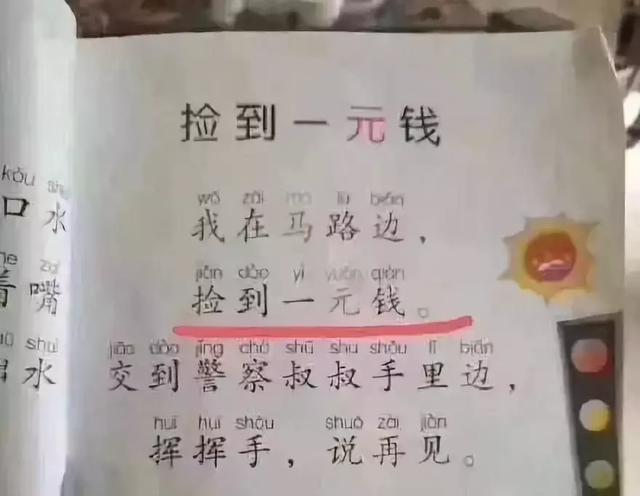 捡到一元钱
wǒ zài mǎ lù biān
我在马路边，
jiǎn dào yì yuán qián
捡到一元钱。
jiāo dào jǐng chá shū shu shǒu lǐ biān
交到警察叔叔手里边，
huī huī shǒu shuō zài jiàn
挥挥手，说再见。
kǒu
口水
嘴
shuǐ
水